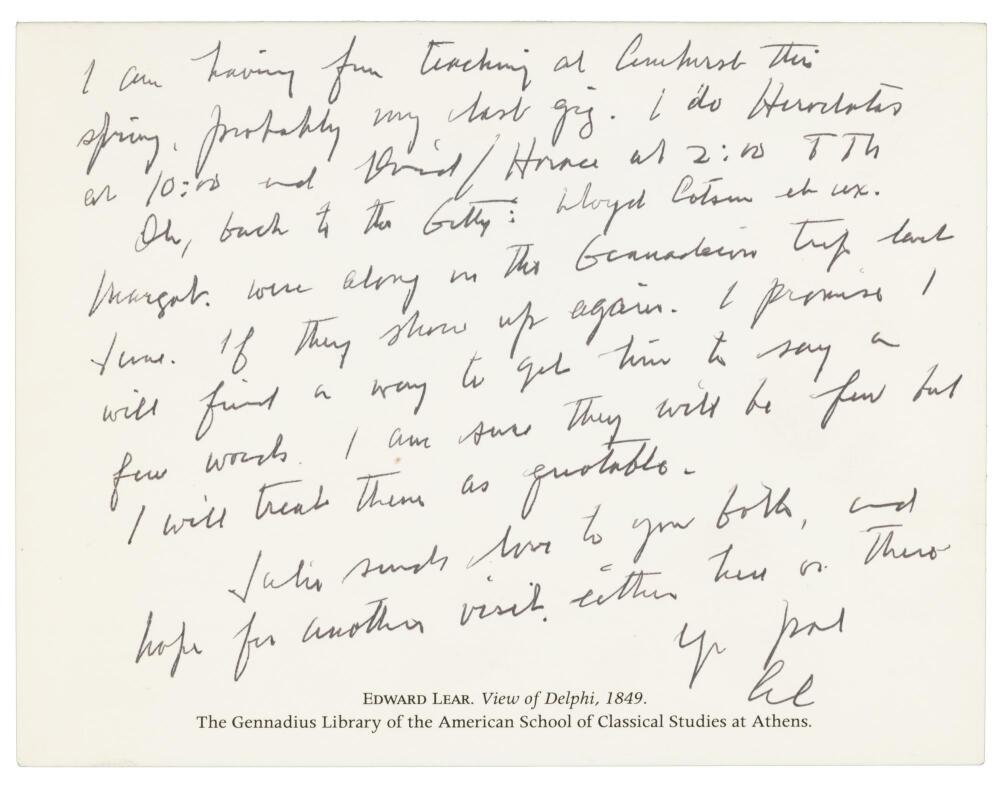 I am having fun teaching at Amherst this
spring, probably my last gig. I do Herodotus
at 10:00 and Ovid / Horace at 2:00 T Th
Oh, back to the Getty: Lloyd Cotsen et ux.
Margit. were along on the Gennadeion trip last
June. If they show up again. I promise I
will find a way to get him to say a
few words. I am sure they will be few but
I will treat them as quotable.
sends love to you both, and
hope for another visit, either here or there
yr pal
EDWARD LEAR. View of Delphi, 1849.
The Gennadius Library of the American School of Classical Studies at Athens.